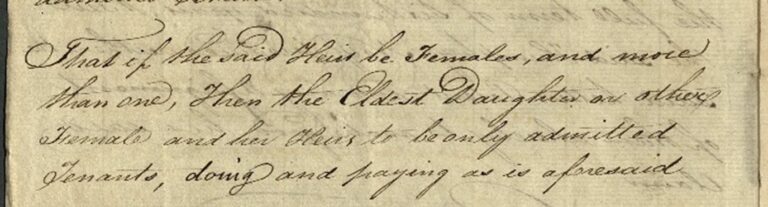 That if the said Heirs be Females, and more
than one, Then the Eldest Daughter or other
Female and her Heirs to be only admitted
Tenants, doing and paying as is aforesaid